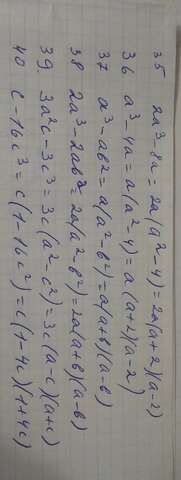 35 2a³-8a=2a(a²-4)=2a(a+2)(a-2)
36 a³-4a=a(a²-4)=a(a+2)(a-2)
37 a³-ab²=a(a²-b²)=a(a+b)(a-b)
38 2a³-2ab²=2a(a²-b²)=2a(a+b)(a-b)
39. 3a²c-3c³=3c(a²-c²)=3c(a-c)(a+c)
40 c-16c³=c(1-16c²)=c(1-4c)(1+4c)